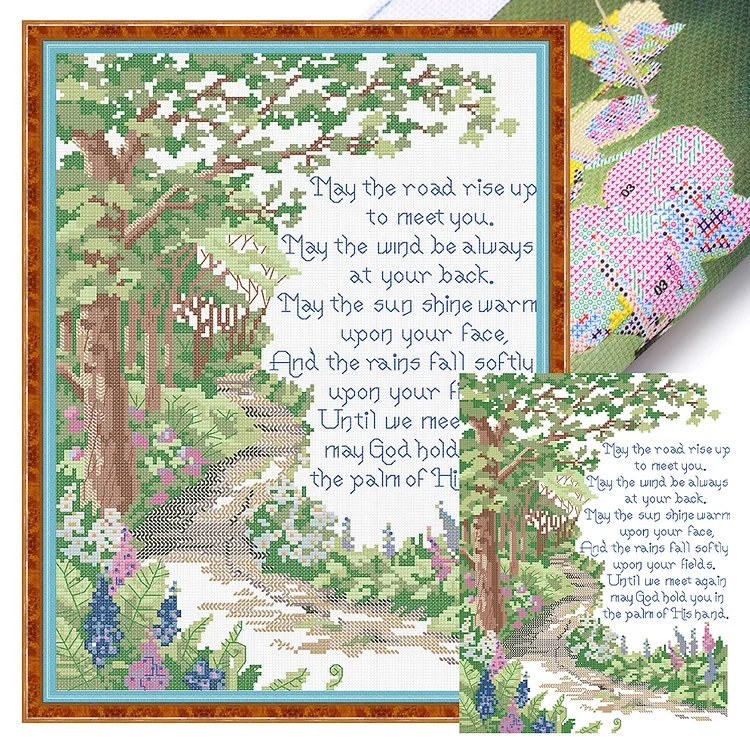 May the road rise up
to meet you.
May the wind be always
at your back.
May the sun shine warm
upon your face,
And the rains fall softly
upon your fi
Until we mee
may God hold
the palm of His
03
03
May the road rise up
to meet you.
May the wind be always
at your back.
May the sun shine warm
upon your face,
And the rains fall softly
upon your fields.
Until we meet again
may God hold you in
the palm of His hand.